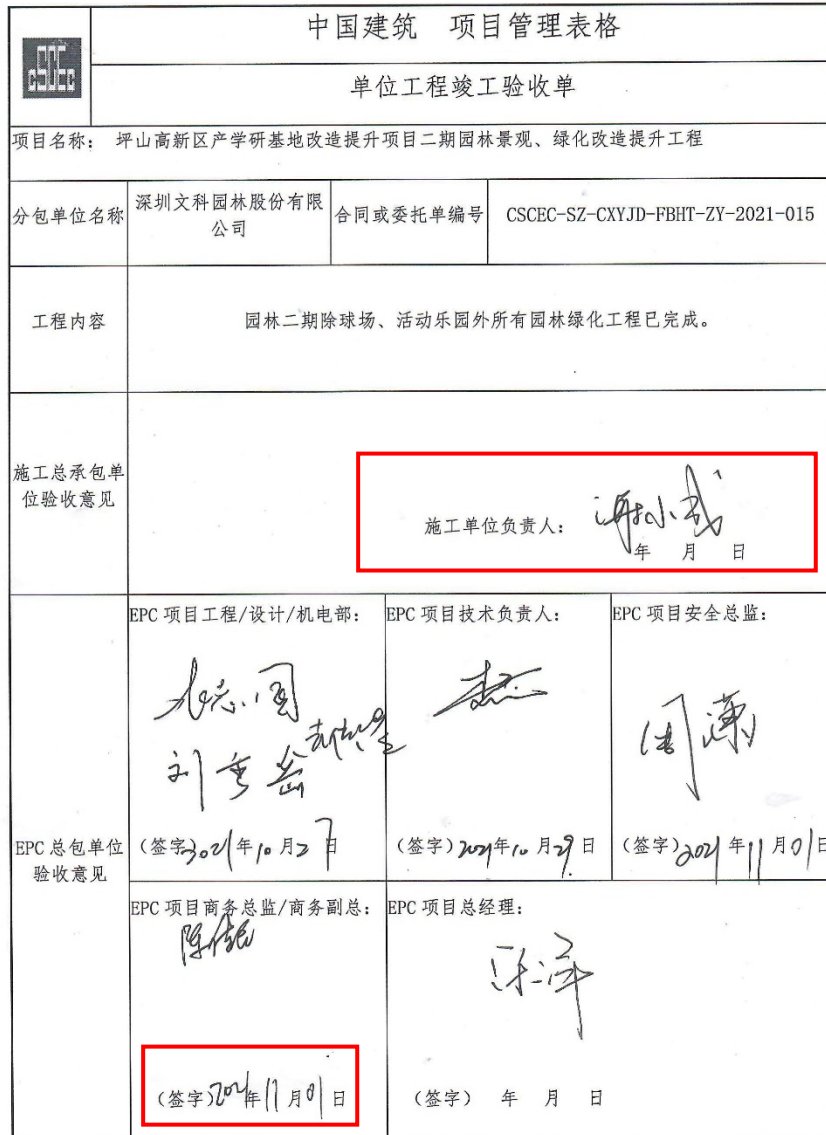 CSCEC
中国建筑 项目管理表格
单位工程竣工验收单
项目名称： 坪山高新区产学研基地改造提升项目二期园林景观、绿化改造提升工程
分包单位名称
深圳文科园林股份有限
公司
合同或委托单编号
CSCEC-SZ-CXYJD-FBHT-ZY-2021-015
工程内容
园林二期除球场、活动乐园外所有园林绿化工程已完成。
施工总承包单
位验收意见
施工单位负责人：
年 月 日
EPC 总包单位
验收意见
EPC 项目工程/设计/机电部：
刘
（签字）2021年10月27日
EPC 项目技术负责人：
（签字）2021年10月29日
EPC 项目安全总监：
周
（签字）2021年11月01日
EPC 项目商务总监/商务副总：
陈
（签字）2021年11月01日
EPC 项目总经理：
（签字） 年 月 日